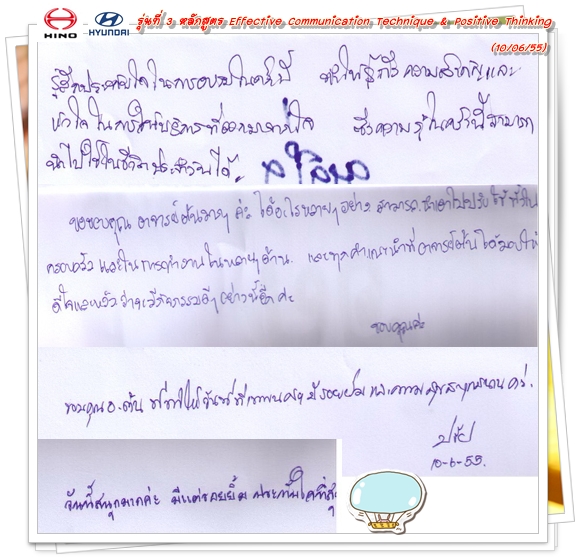 HINO HYUNDAI รุ่นที่ 3 หลักสูตร Effective Communication Technique & Positive Thinking
(10/06/55)
รู้สึกประทับใจในการอบรมในครั้งนี้ ทำให้รู้ถึงความสำคัญและ
หัวใจในการให้บริการที่ออกมาจากใจ ซึ่งความรู้ในครั้งนี้สามารถ
นำไปใช้ในชีวิตประจำวันได้
ขอขอบคุณ อาจารย์ต้นมากๆ ค่ะ ได้อะไรหลายๆ อย่าง สามารถนำเอาไปปรับใช้ทั้งใน
ครอบครัว และในการทำงานในหลายๆ ด้าน และทุกคำแนะนำที่อาจารย์ต้นได้มอบให้
ดีใจและหวังว่าจะมีกิจกรรมดีๆ อย่างนี้อีกค่ะ
ขอบคุณค่ะ
ขอบคุณ อ.ต้น ที่ทำให้วันนี้ รอยยิ้ม และความสุขสนุกสนาน ครับ.
10-6-55.
วันนี้สนุกมากค่ะ มีแต่รอยยิ้ม ประทับใจที่สุ